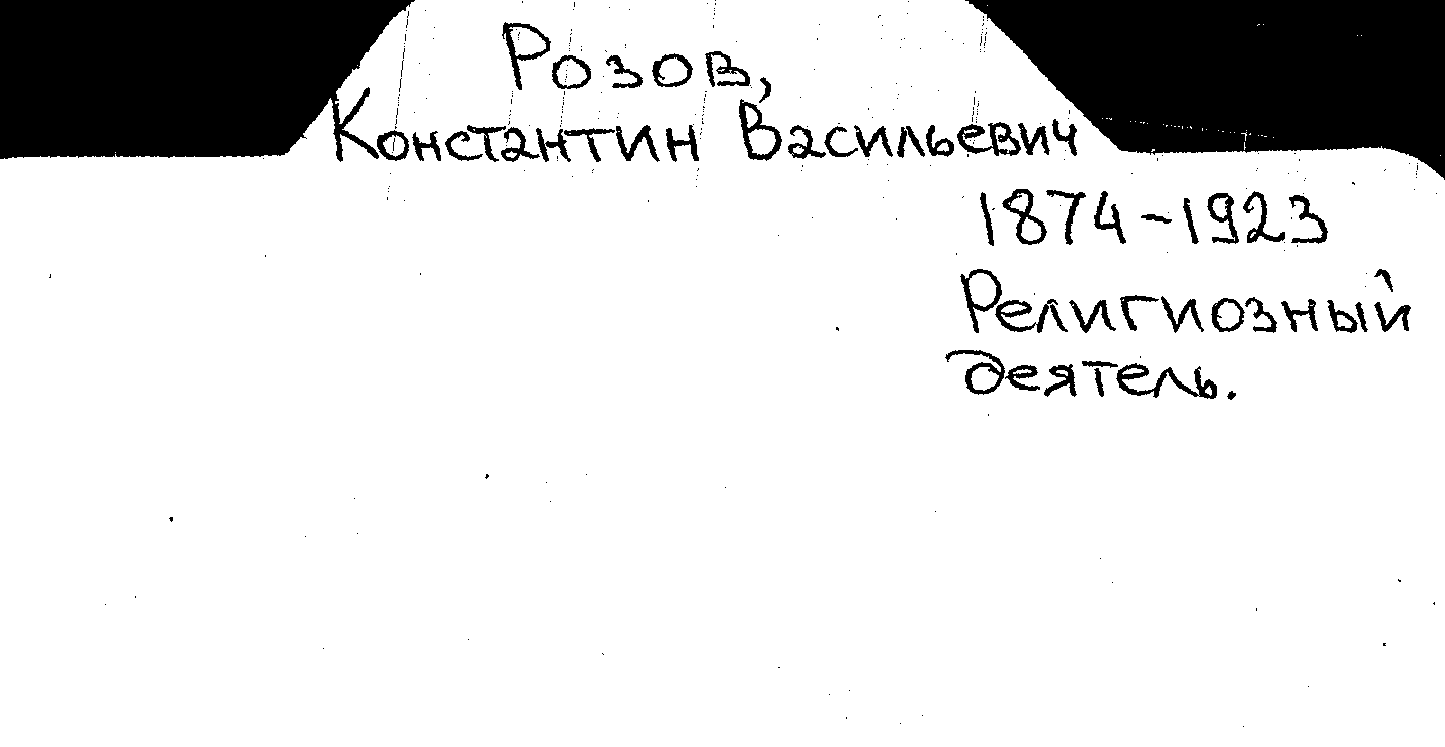 Розов,
Константин Васильевич
1874-1923
Религиозный
деятель.